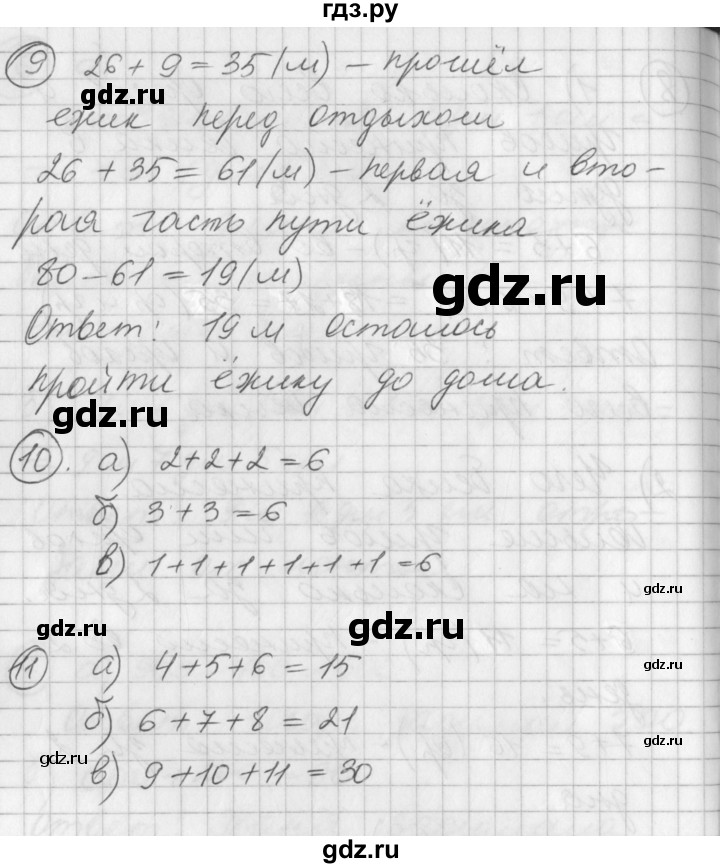 гдз.ру
9 26 + 9 = 35 (м) – прошёл
ежик перед отдыхом
26 + 35 = 61 (м) – первая и вто-
рая часть пути ёжика
80 – 61 = 19 (м)
Ответ: 19 м осталось
пройти ёжику до дома.
10. а) 2+2+2 = 6
б) 3 + 3 = 6
в) 1+1+1+1+1+1 = 6
11 а) 4+5+6 = 15
б) 6+7+8 = 21
в) 9+10+11 = 30
gdz.ru
gdz.ru
gdz.ru
gdz.ru
gdz.ru
gdz.ru
gdz.ru
gdz.ru
gdz.ru
gdz.ru
гдз.ру